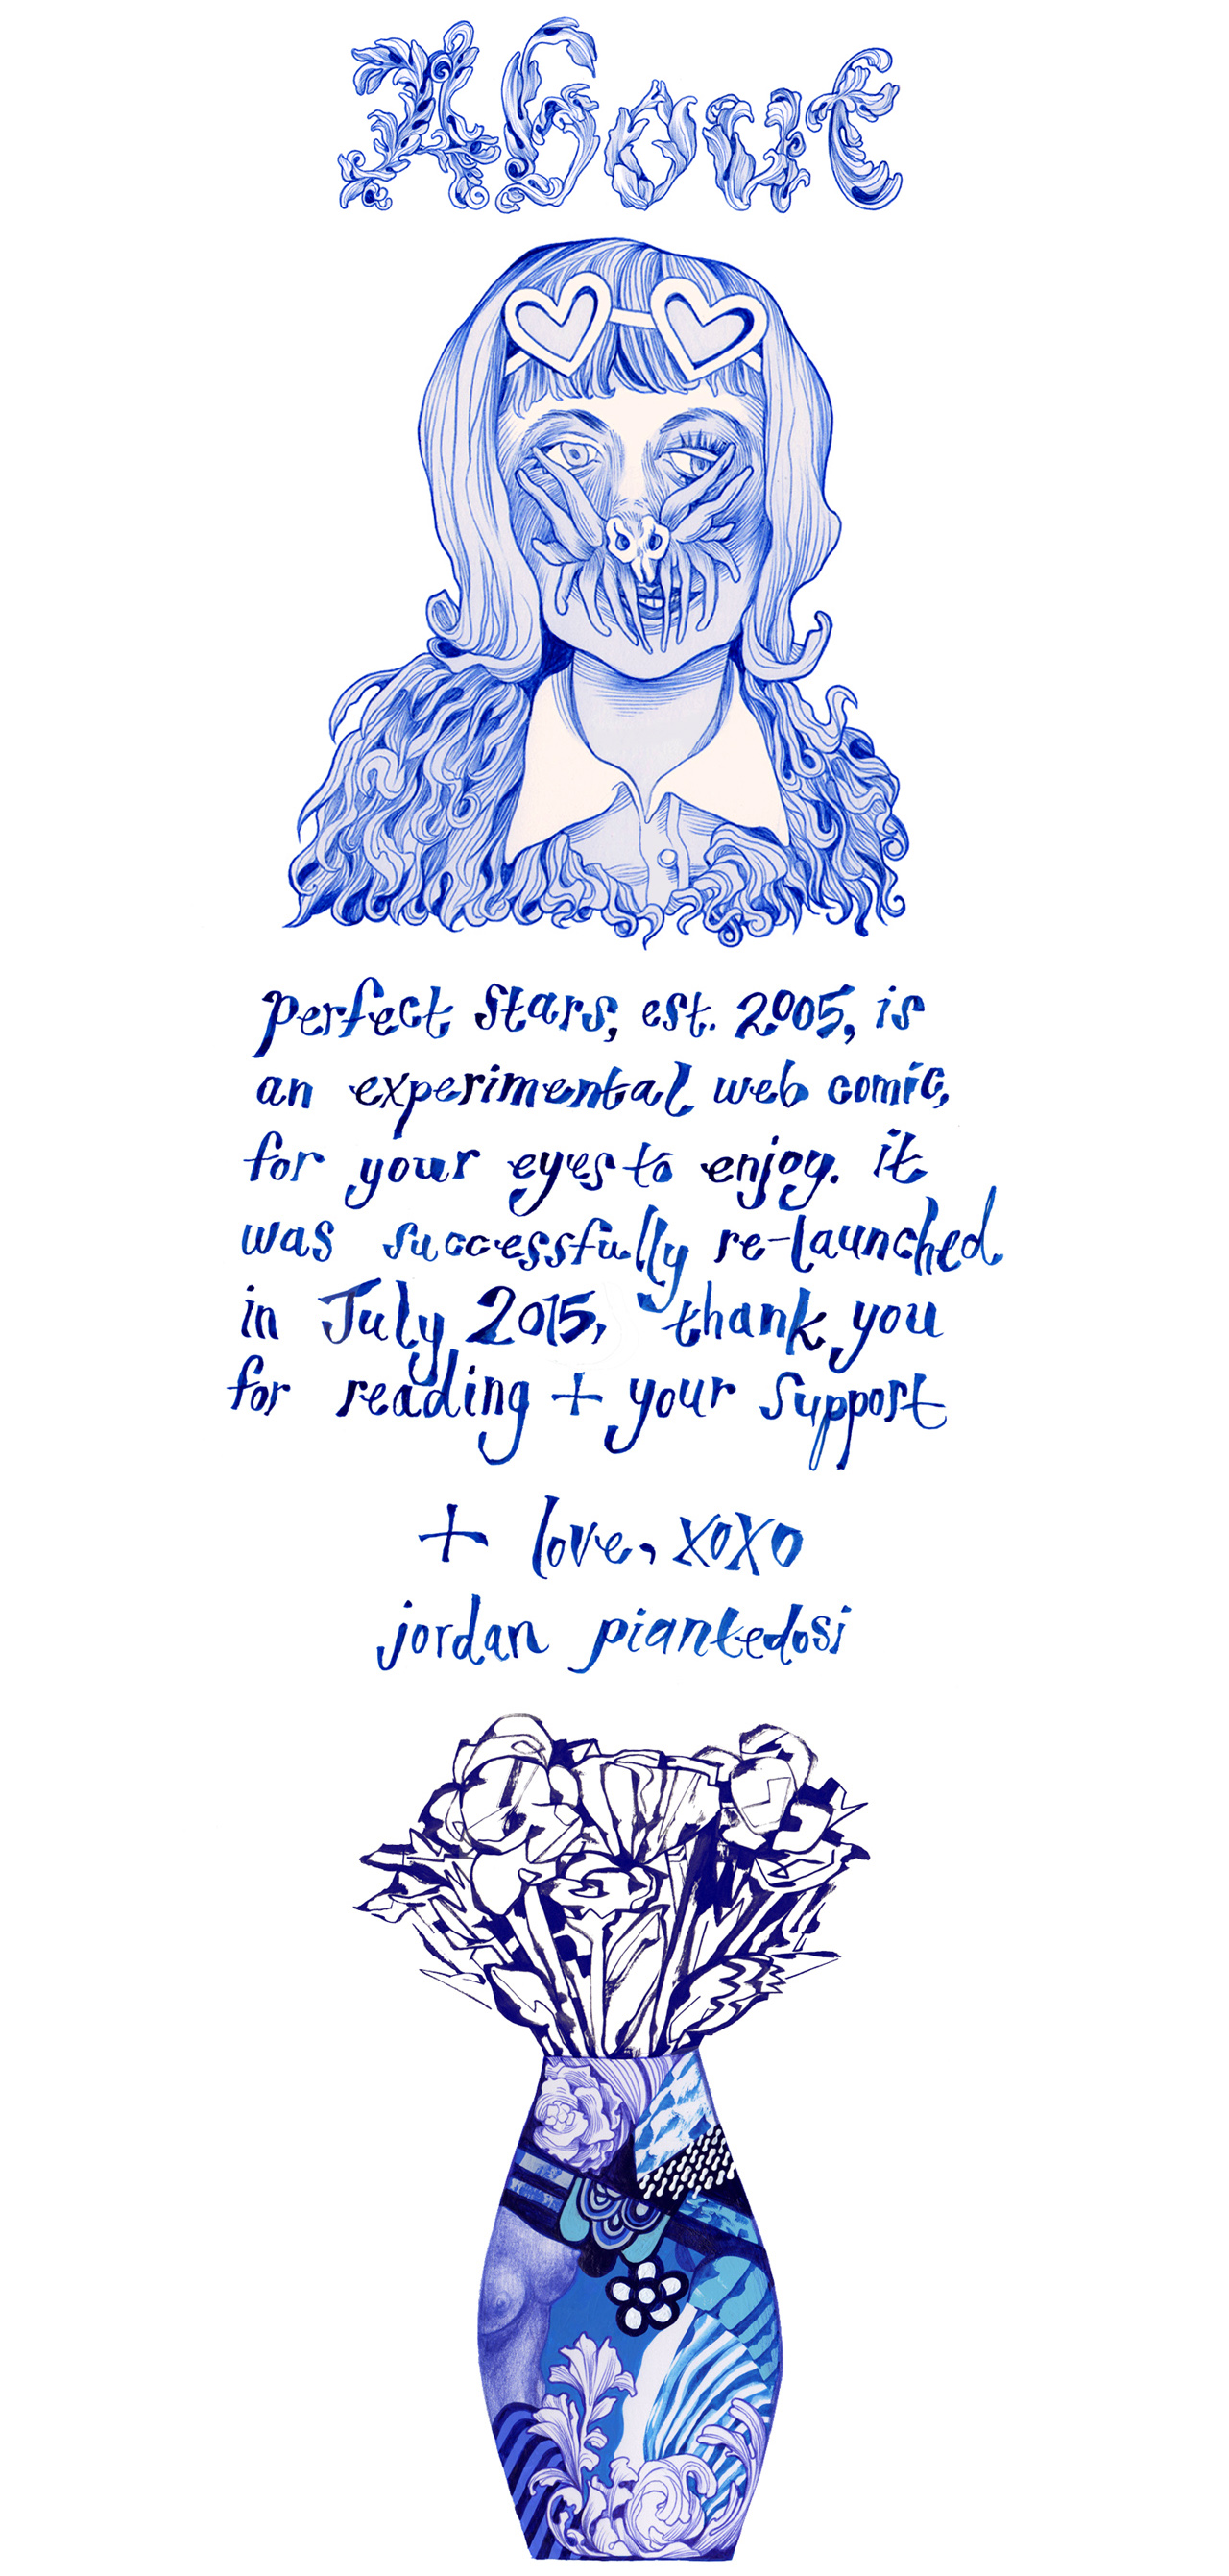 About
perfect stars, est. 2005, is
an experimental web comic,
for your eyes to enjoy. it
was successfully re-launched
in July 2015, thank you
for reading + your support
+ love, xoxo
jordan piantedosi